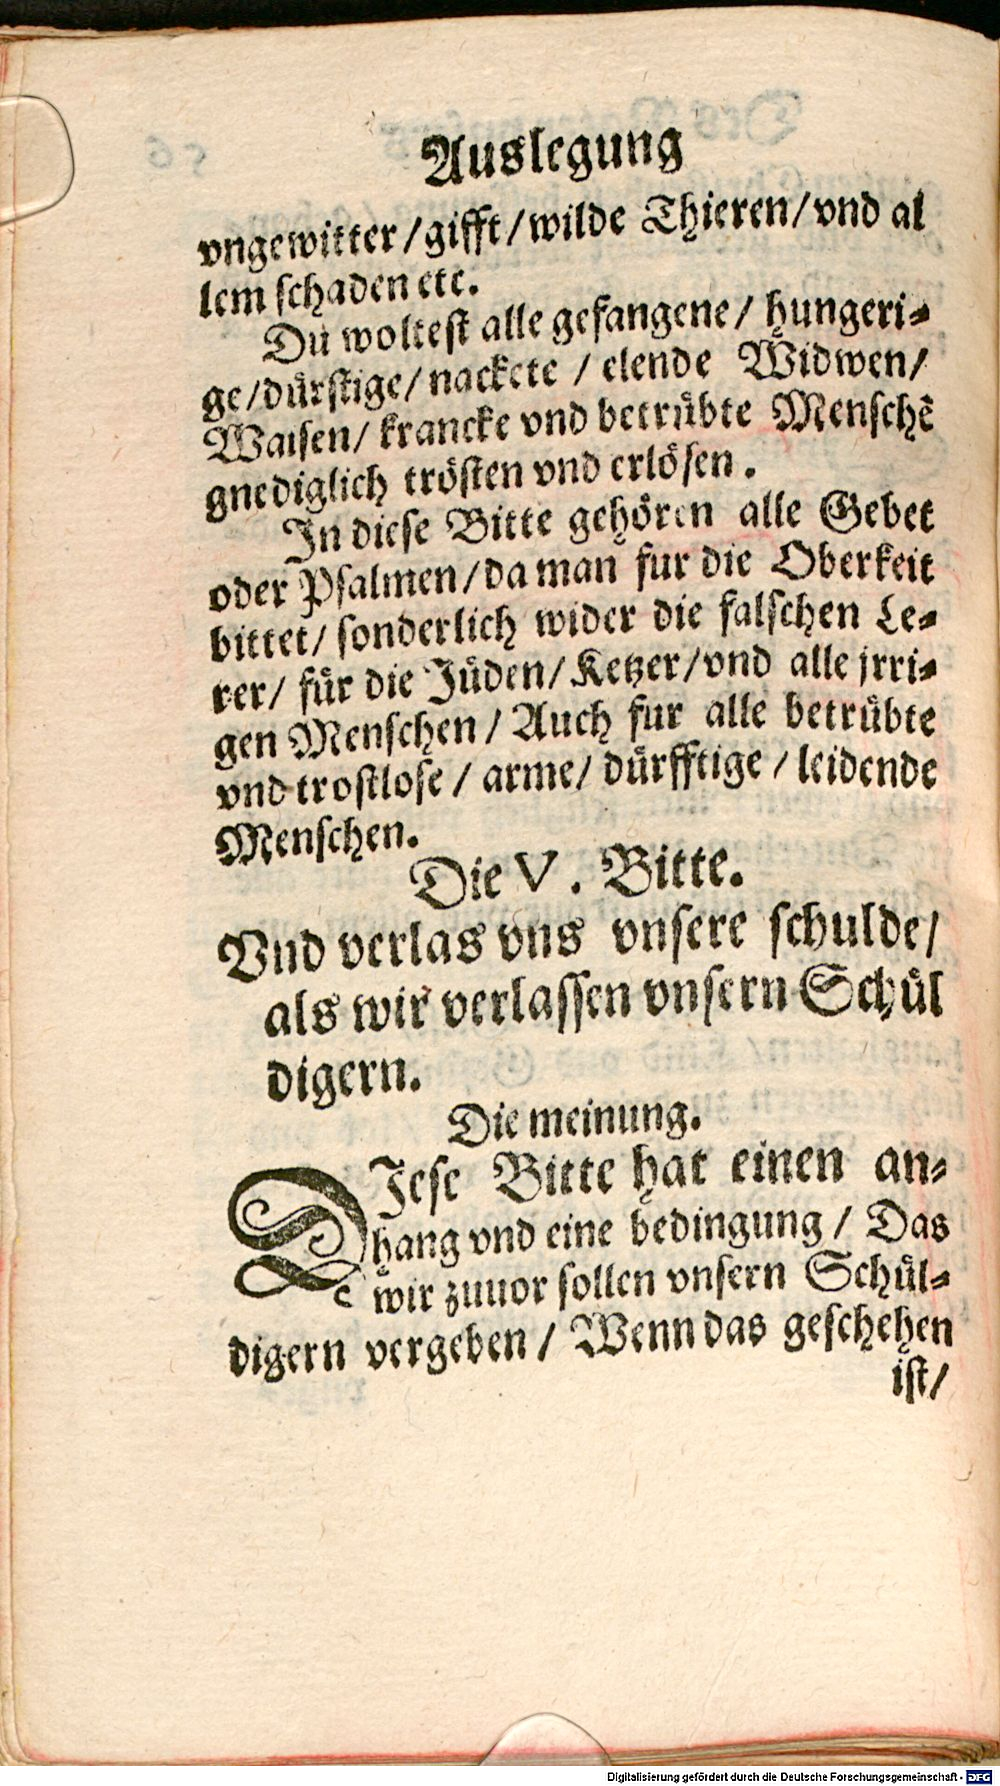 Auslegung
vngewitter / gifft / wilde Thieren / vnd al
lem schaden etc.
Du woltest alle gefangene / hungeri-
ge / dürstige / nackete / elende Widwen /
Waisen / krancke vnd betrübte Menschẽ
gnediglich trösten vnd erlösen .
In diese Bitte gehören alle Gebet
oder Psalmen / da man fur die Oberkeit
bittet / sonderlich wider die falschen Le-
rer / für die Jüden / Ketzer / vnd alle jrri-
gen Menschen / Auch fur alle betrübte
vnd trostlose / arme / dürfftige / leidende
Menschen.
Die V . Bitte.
Vnd verlas vns vnsere schulde /
als wir verlassen vnsern Schül
digern.
Die meinung.
DIese Bitte hat einen an-
hang vnd eine bedingung / Das
wir zuuor sollen vnsern Schül-
digern vergeben / Wenn das geschehen
ist /
Digitalisierung gefördert durch die Deutsche Forschungsgemeinschaft - DFG